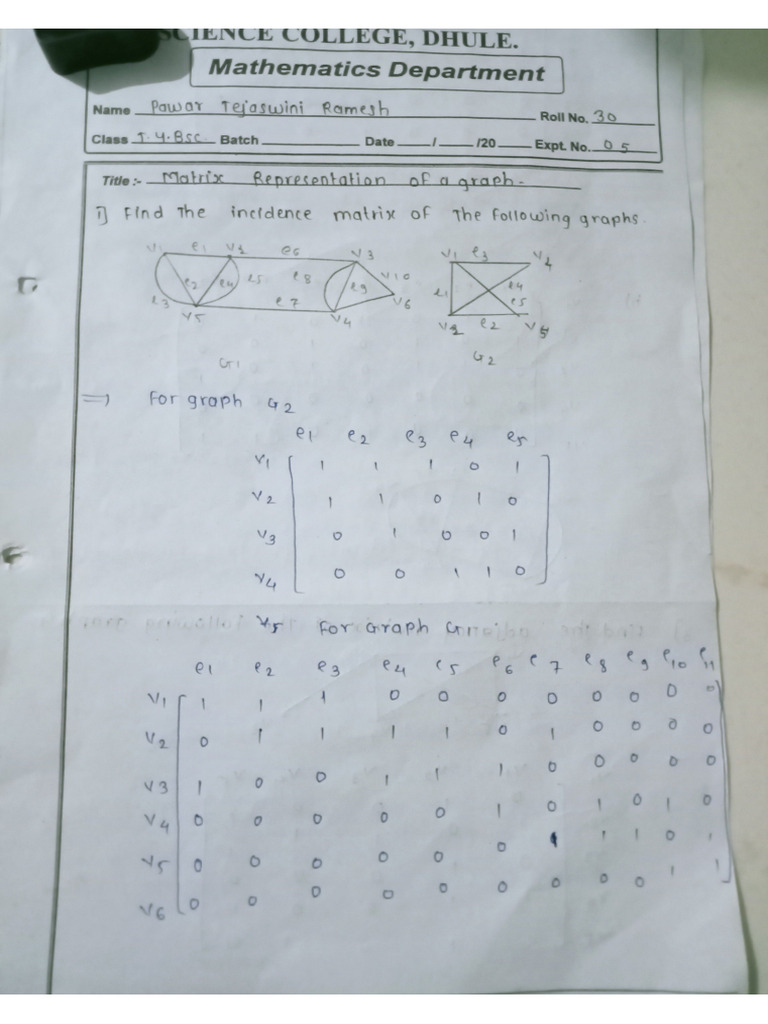 SCIENCE COLLEGE, DHULE.
Mathematics Department
Name Pawar Tejaswini Ramesh Roll No. 30
Class T.Y.BSC. Batch Date / /20 Expt. No. 05
Title :- Matrix Representation of a graph.
i) Find The incidence matrix of The following graphs.
V1 e1 V2 e6 V3 V1 e3 V4
e2 e4 e5 e8 e9 V10 e1 e4
e3 e7 V6 e5
V5 V4 V2 e2 V5
G1 G2
=) For graph G2
e1 e2 e3 e4 e5
V1 1 1 1 0 1
V2 1 1 0 1 0
V3 0 1 0 0 1
V4 0 0 1 1 0
V5 For Graph G1
e1 e2 e3 e4 e5 e6 e7 e8 e9 e10 e11
V1 1 1 1 0 0 0 0 0 0 0 0
V2 0 1 1 1 1 0 1 0 0 0 0
V3 1 0 0 1 1 1 0 0 0 0 0
V4 0 0 0 0 0 1 0 1 0 1 0
V5 0 0 0 0 0 0 1 1 1 0 1
V6 0 0 0 0 0 0 0 0 0 1 1